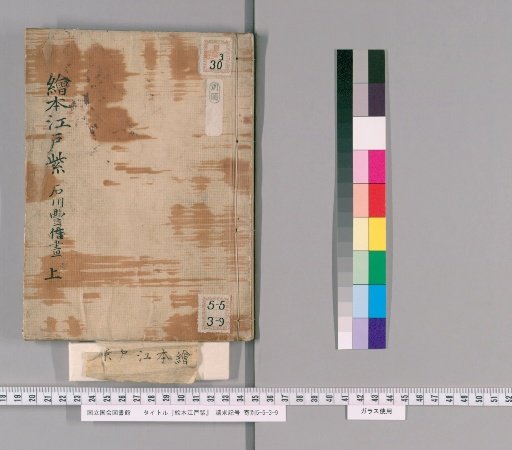 繪本江戸紫 石川豊信畫 上
3
30
5-5
3-9
繪本江戸
18 19 20 21 22 23 24 25 26 27 28 29 30 31 32 33 34 35 36 37 38 39 40 41 42 43 44 45 46 47 48 49 50 51
国立国会図書館 タイトル『絵本江戸紫』 請求記号 寄別5-5-3-9
ガラス使用